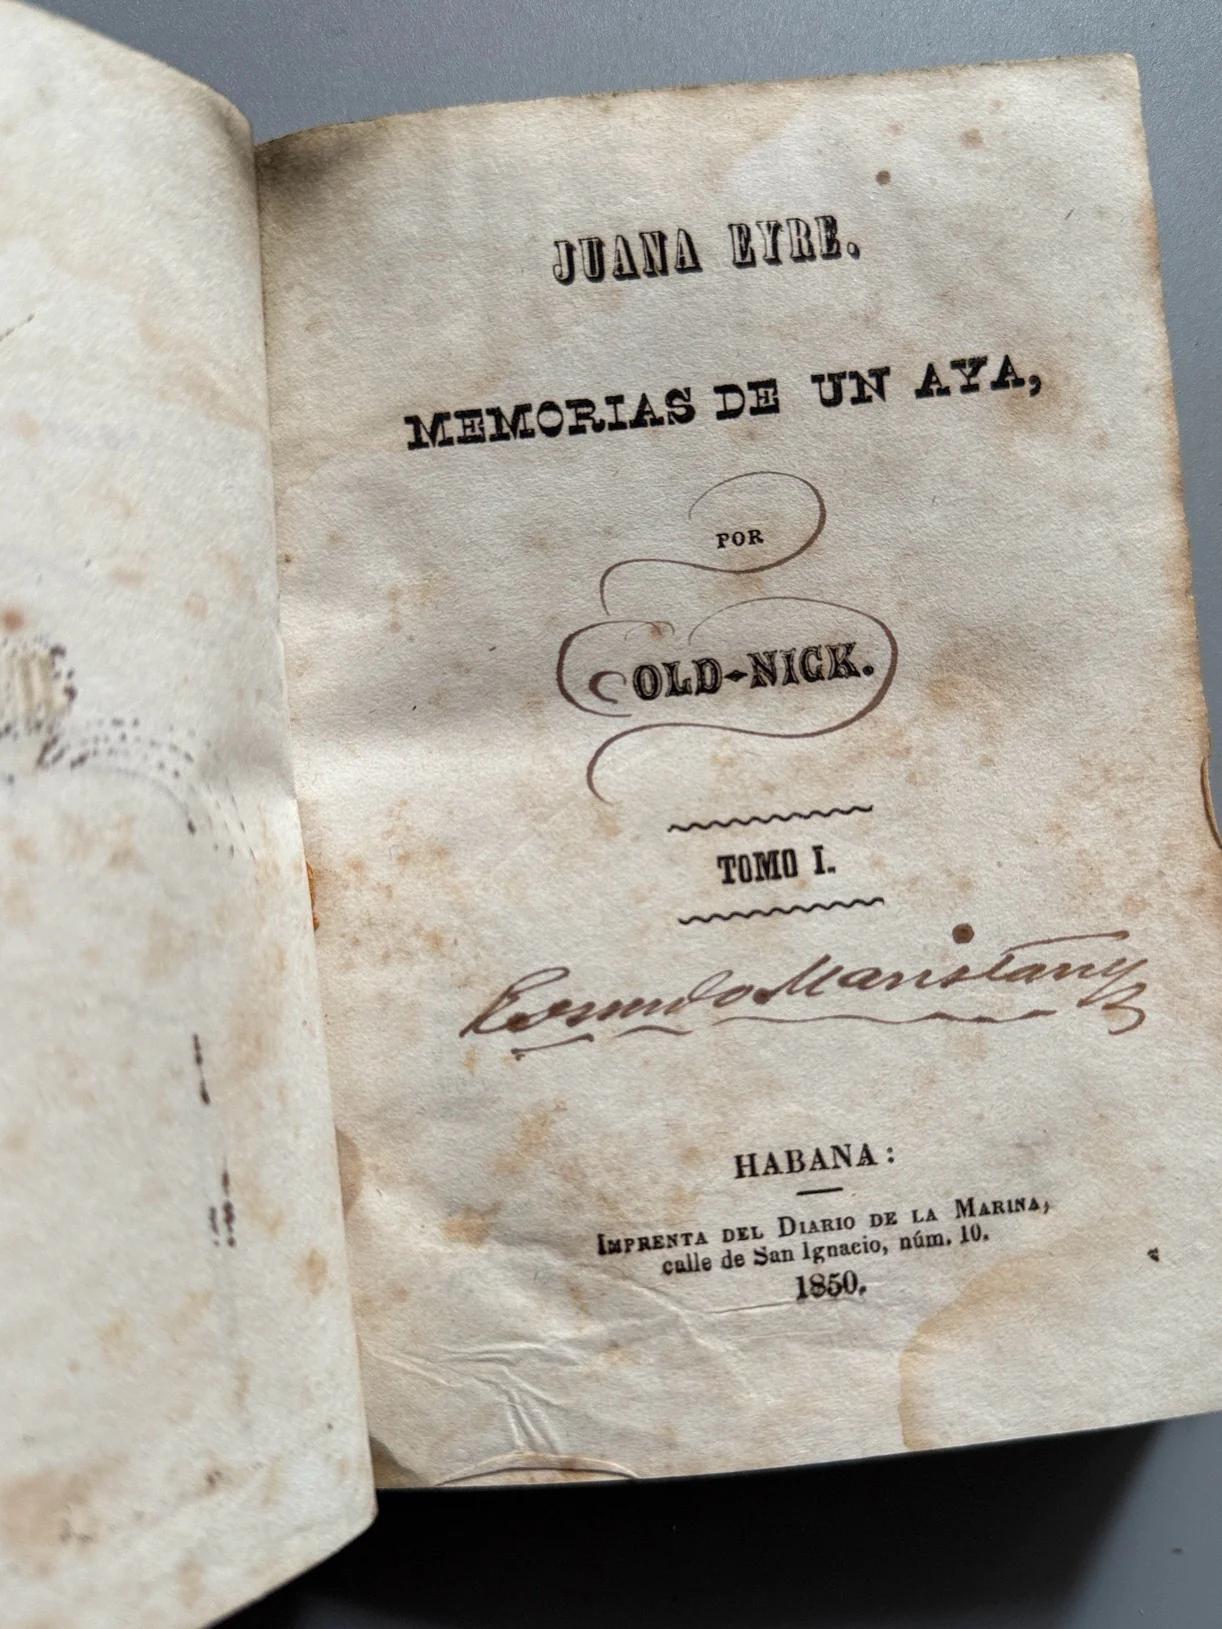 JUANA EYRE.
MEMORIAS DE UN AYA,
POR
OLD-NICK.
TOMO I.
Maristany
HABANA:
IMPRENTA DEL DIARIO DE LA MARINA,
calle de San Ignacio, núm. 10.
1850.